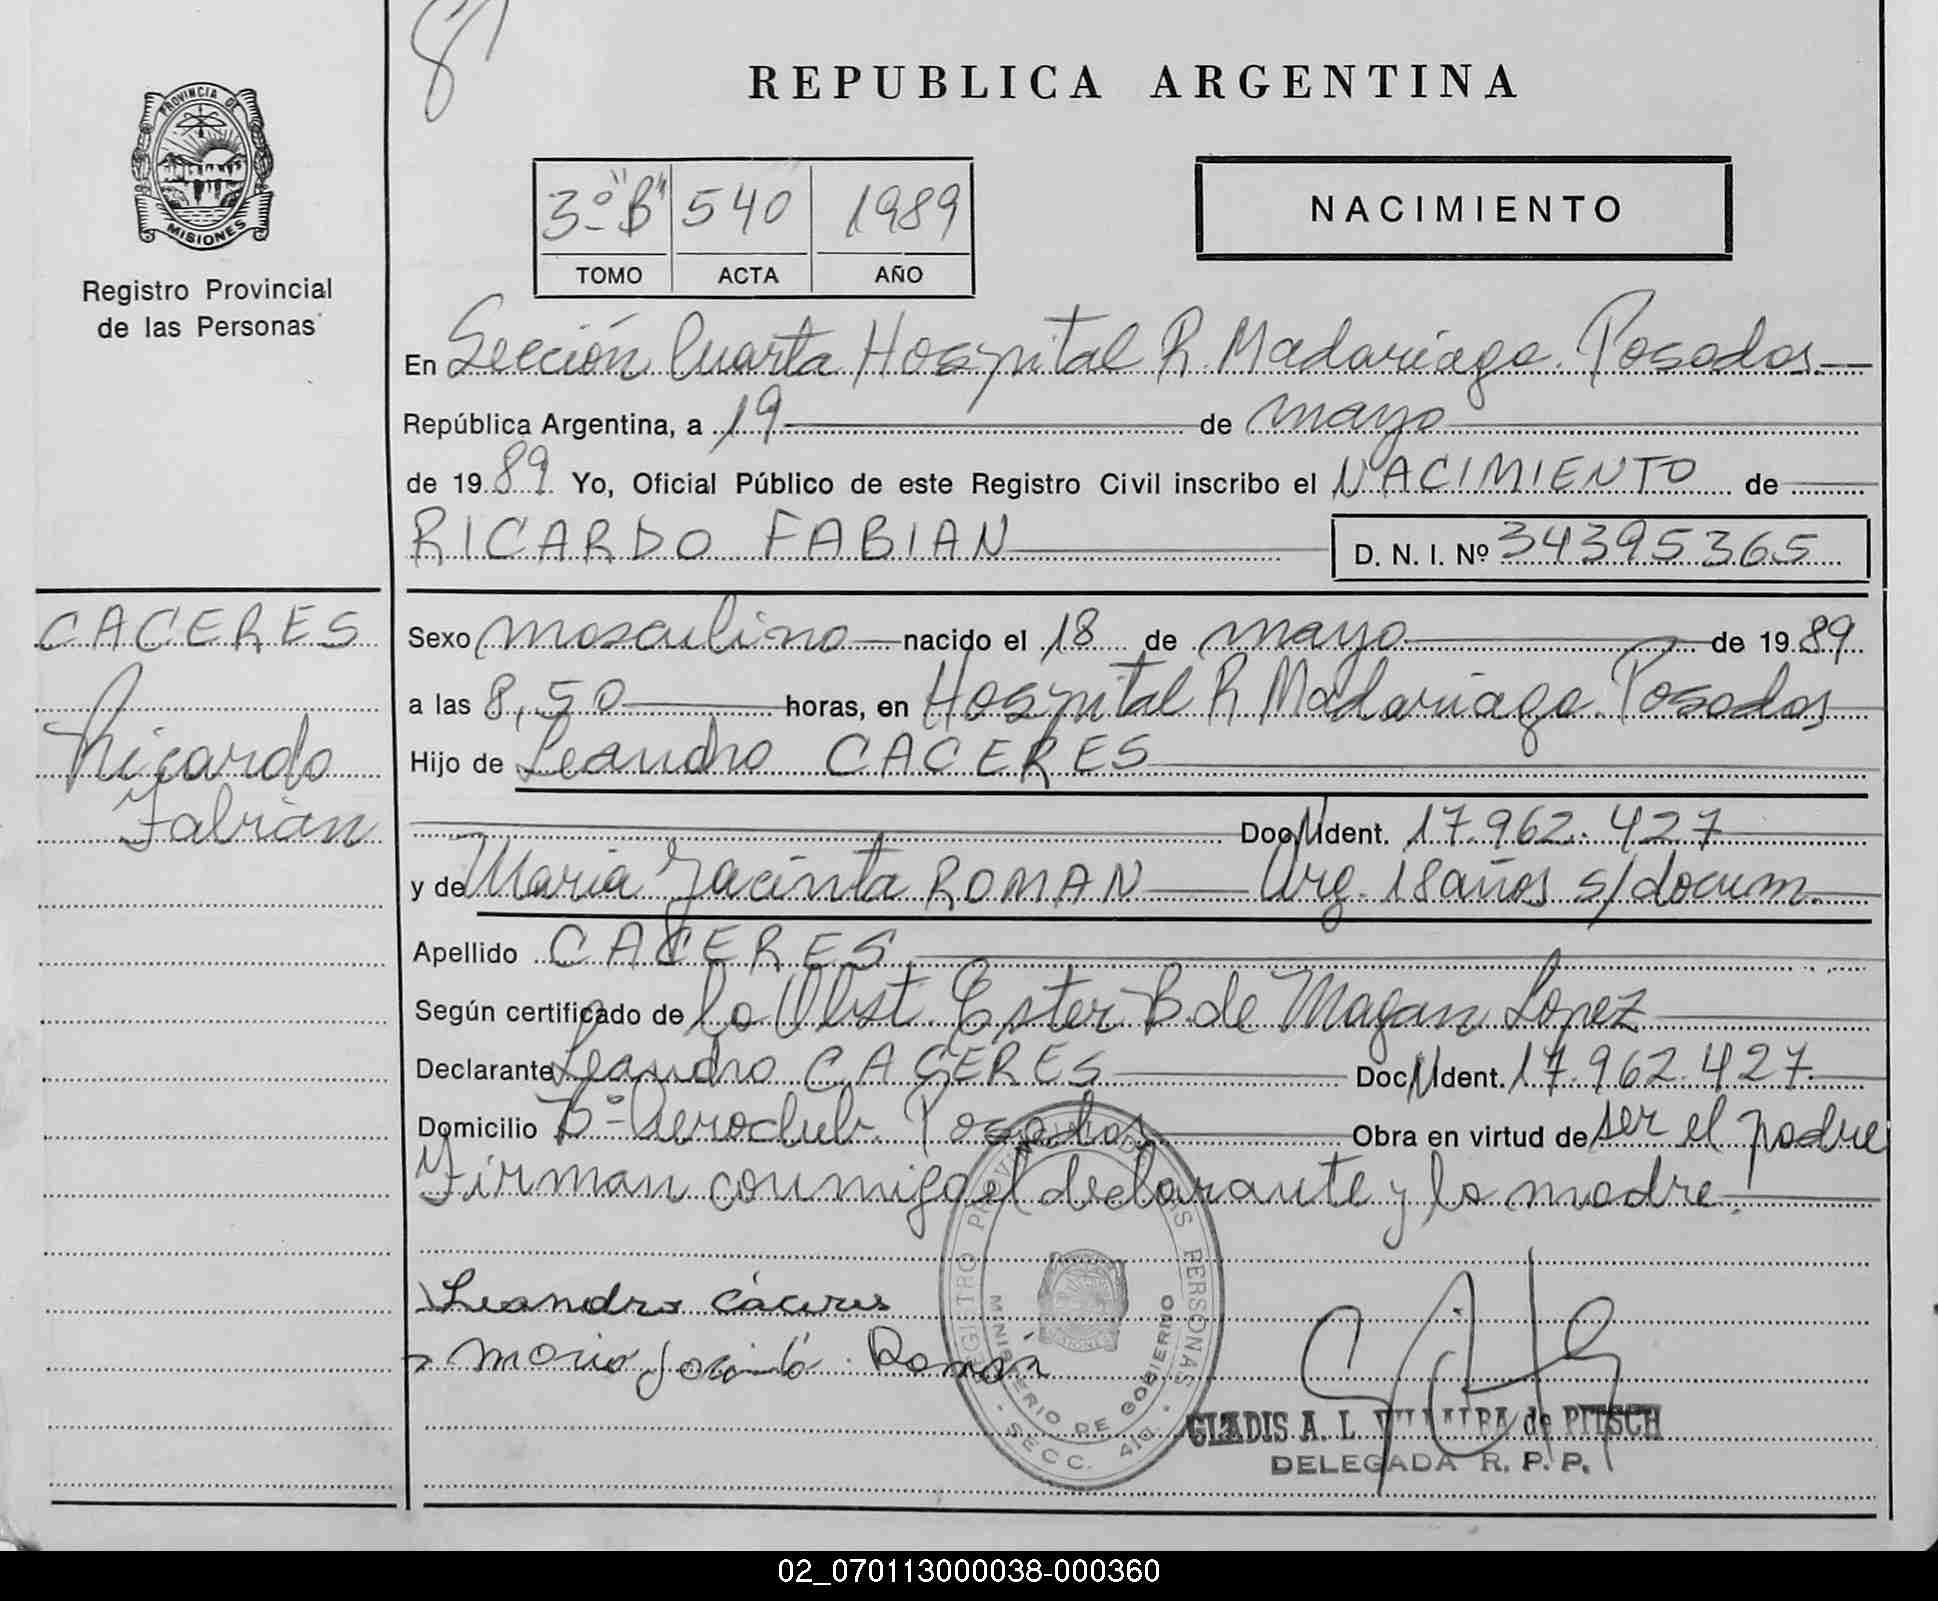 REPUBLICA ARGENTINA
PROVINCIA DE
MISIONES
Registro Provincial
de las Personas
3º "B" 540 1989
TOMO ACTA AÑO
NACIMIENTO
En Sección Cuarta Hospital R. Madariaga. Posadas
República Argentina, a 19 de mayo
de 1989 Yo, Oficial Público de este Registro Civil inscribo el NACIMIENTO de
RICARDO FABIAN D. N. I. Nº 34395365
CACERES
Ricardo
Fabián
Sexo masculino nacido el 18 de mayo de 1989
a las 8,50 horas, en Hospital R Madariaga. Posadas
Hijo de Leandro CACERES
Doc N Ident. 17.962.427
y de Maria Jacinta ROMAN Arg. 18 años s/docum.
Apellido CACERES
Según certificado de la Obst. Ester B. de Magan Lopez
Declarante Leandro CACERES Doc N Ident. 17.962.427
Domicilio Bº Aeroclub. Posadas Obra en virtud de ser el padre
Firman conmigo el declarante y la madre.
Leandro Cáceres
Maria Jacinta Román
REGISTRO PROVINCIAL DE LAS PERSONAS
MINISTERIO DE GOBIERNO
SECC. 4ta.
GLADIS A. L. VILLALBA de PITSCH
DELEGADA R. P. P.
02_070113000038-000360